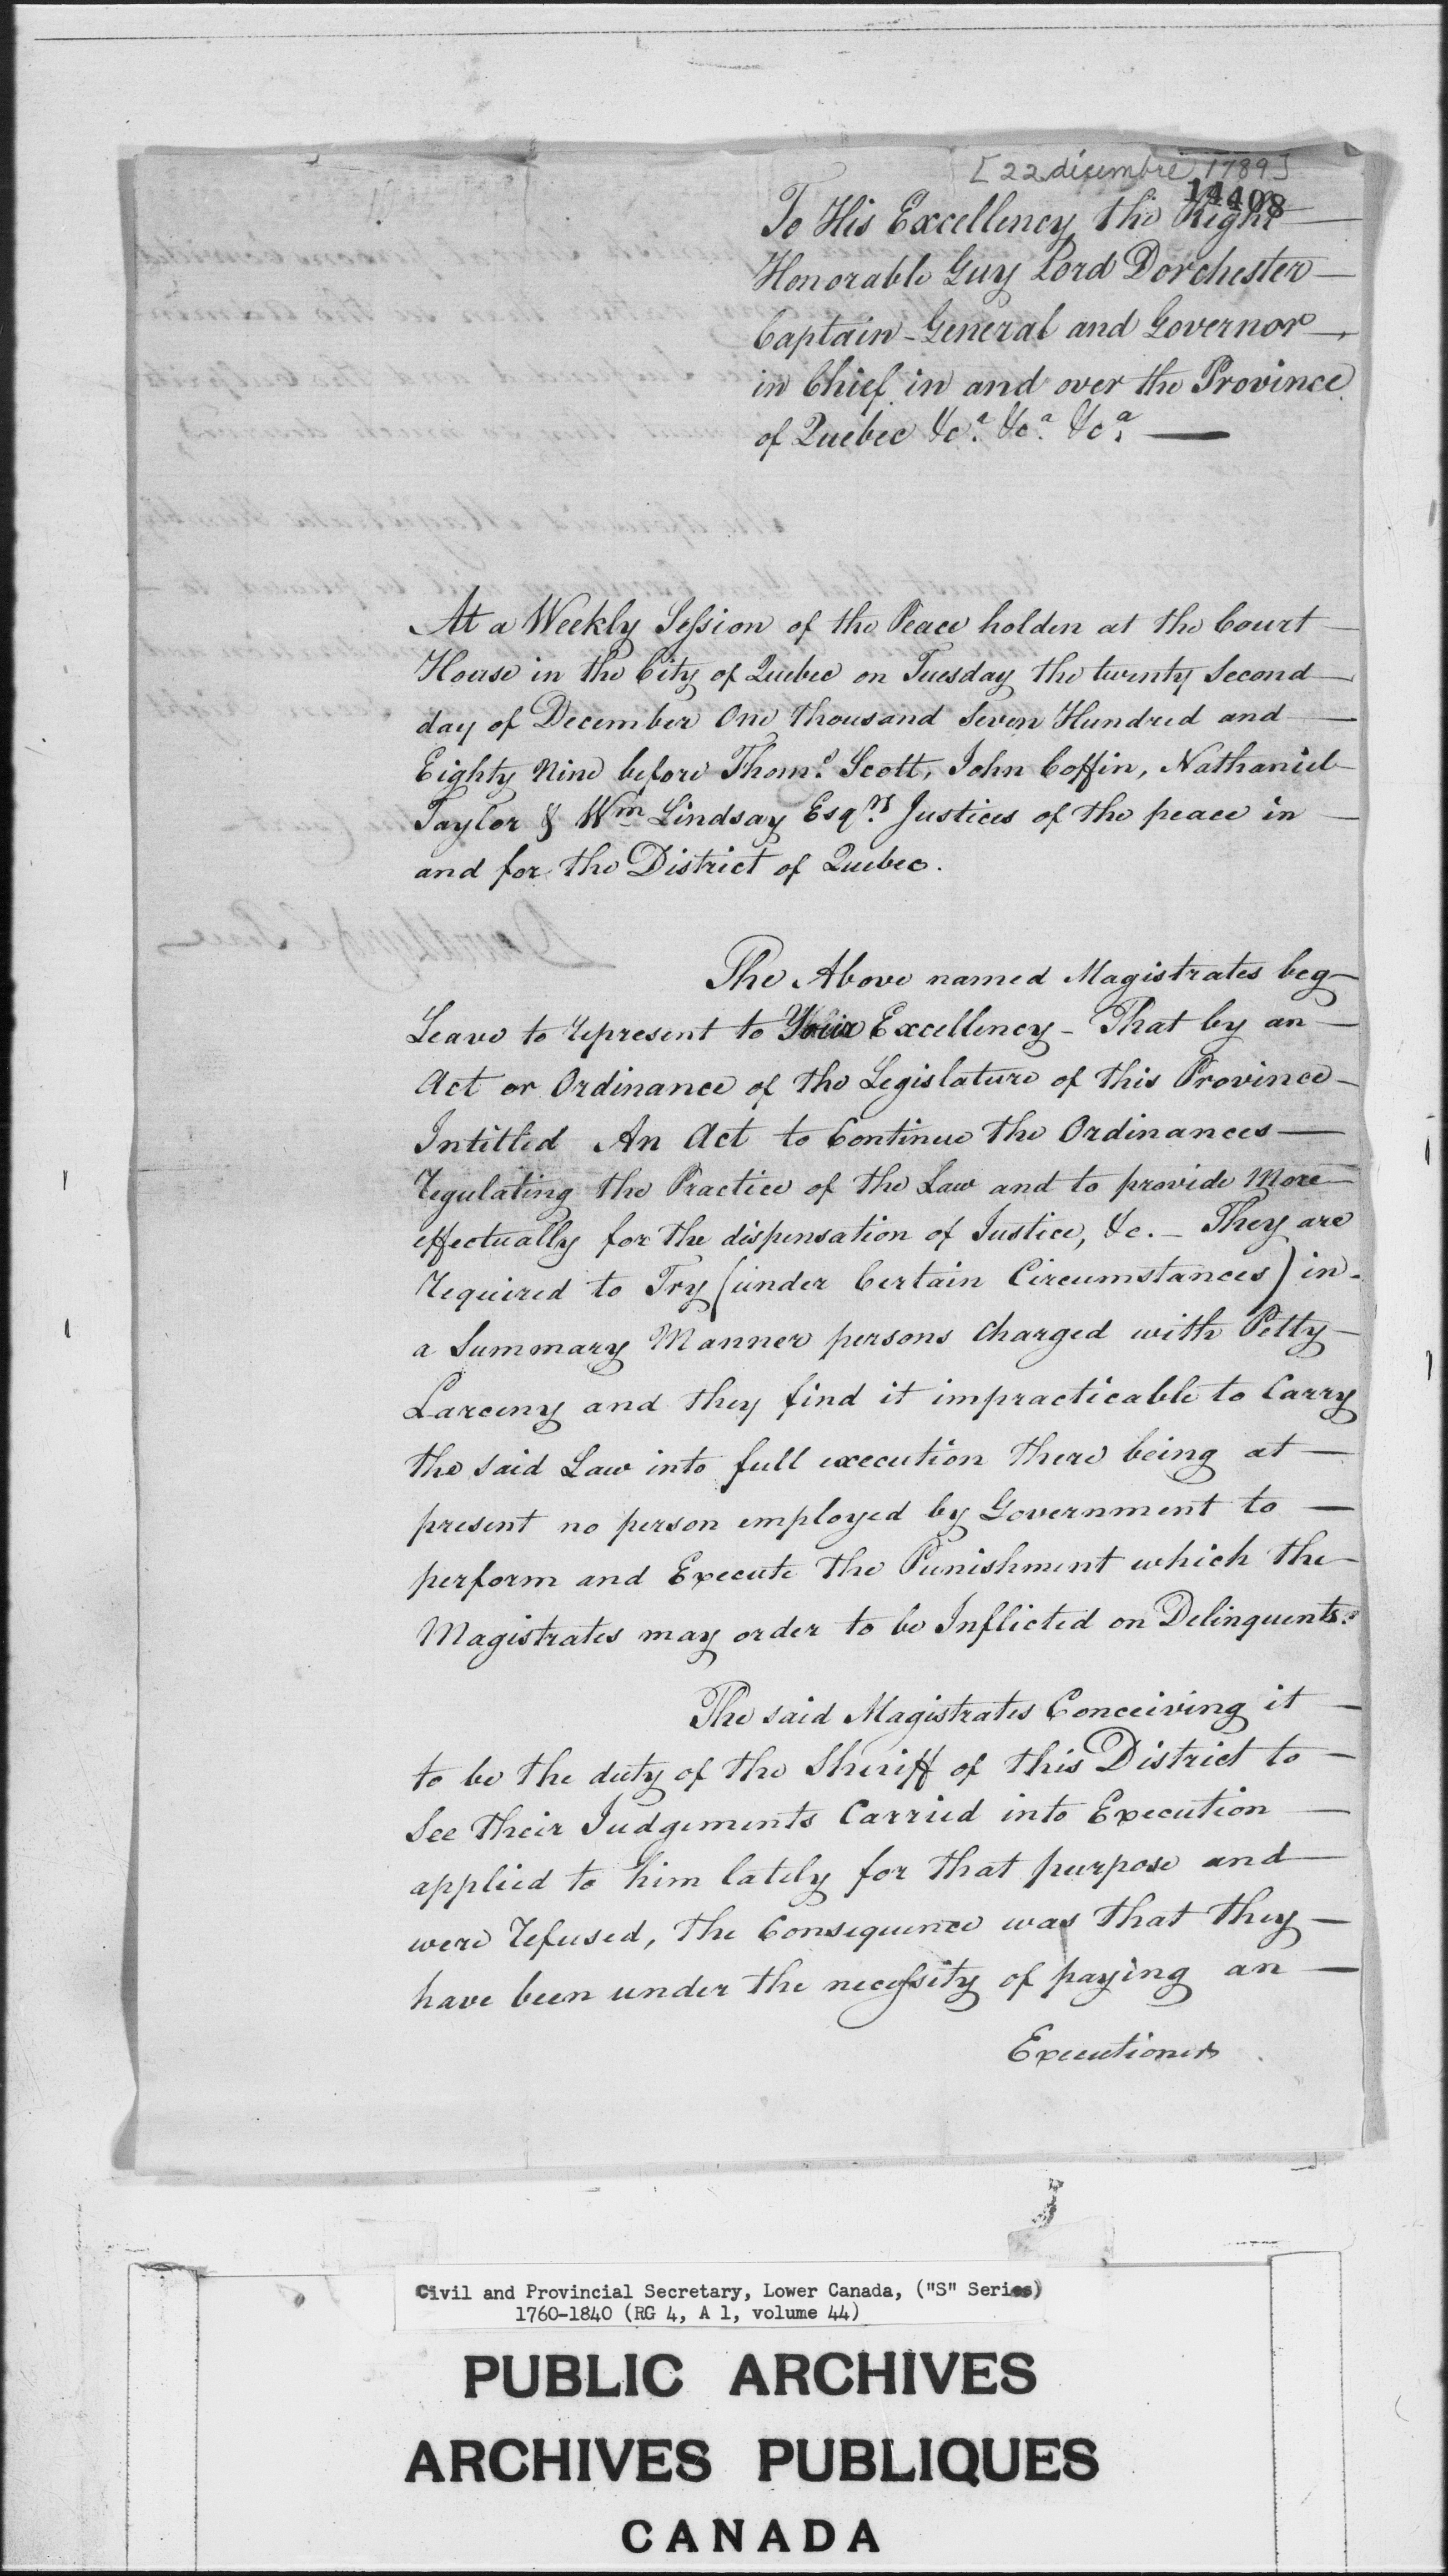 [22 décembre 1789]
14408
To His Excellency the Right
Honorable Guy Lord Dorchester
Captain-General and Governor
in Chief in and over the Province
of Quebec &c.a &c.a &c.a
At a Weekly Session of the Peace holden at the Court
House in the City of Quebec on Tuesday the twenty Second
day of December One thousand Seven Hundred and
Eighty Nine before Thoms. Scott, John Coffin, Nathaniel
Taylor & Wm Lindsay Esqrs. Justices of the peace in
and for the District of Quebec.
The Above named Magistrates beg
Leave to represent to Your Excellency - That by an
Act or Ordinance of the Legislature of this Province
Intitled An Act to Continue the Ordinances
regulating the Practice of the Law and to provide More
effectually for the dispensation of Justice, &c. - They are
required to Try (under Certain Circumstances) in
a Summary Manner persons Charged with Petty
Larceny and they find it impracticable to Carry
the said Law into full execution there being at
present no person employed by Government to
perform and Execute the Punishment which the
Magistrates may order to be Inflicted on Delinquents.
The said Magistrates Conceiving it
to be the duty of the Sheriff of this District to
See their Judgements Carried into Execution
applied to him lately for that purpose and
were refused, the Consequence was that they
have been under the necessity of paying an
Executioner
Civil and Provincial Secretary, Lower Canada, ("S" Series)
1760-1840 (RG 4, A 1, volume 44)
PUBLIC ARCHIVES
ARCHIVES PUBLIQUES
CANADA